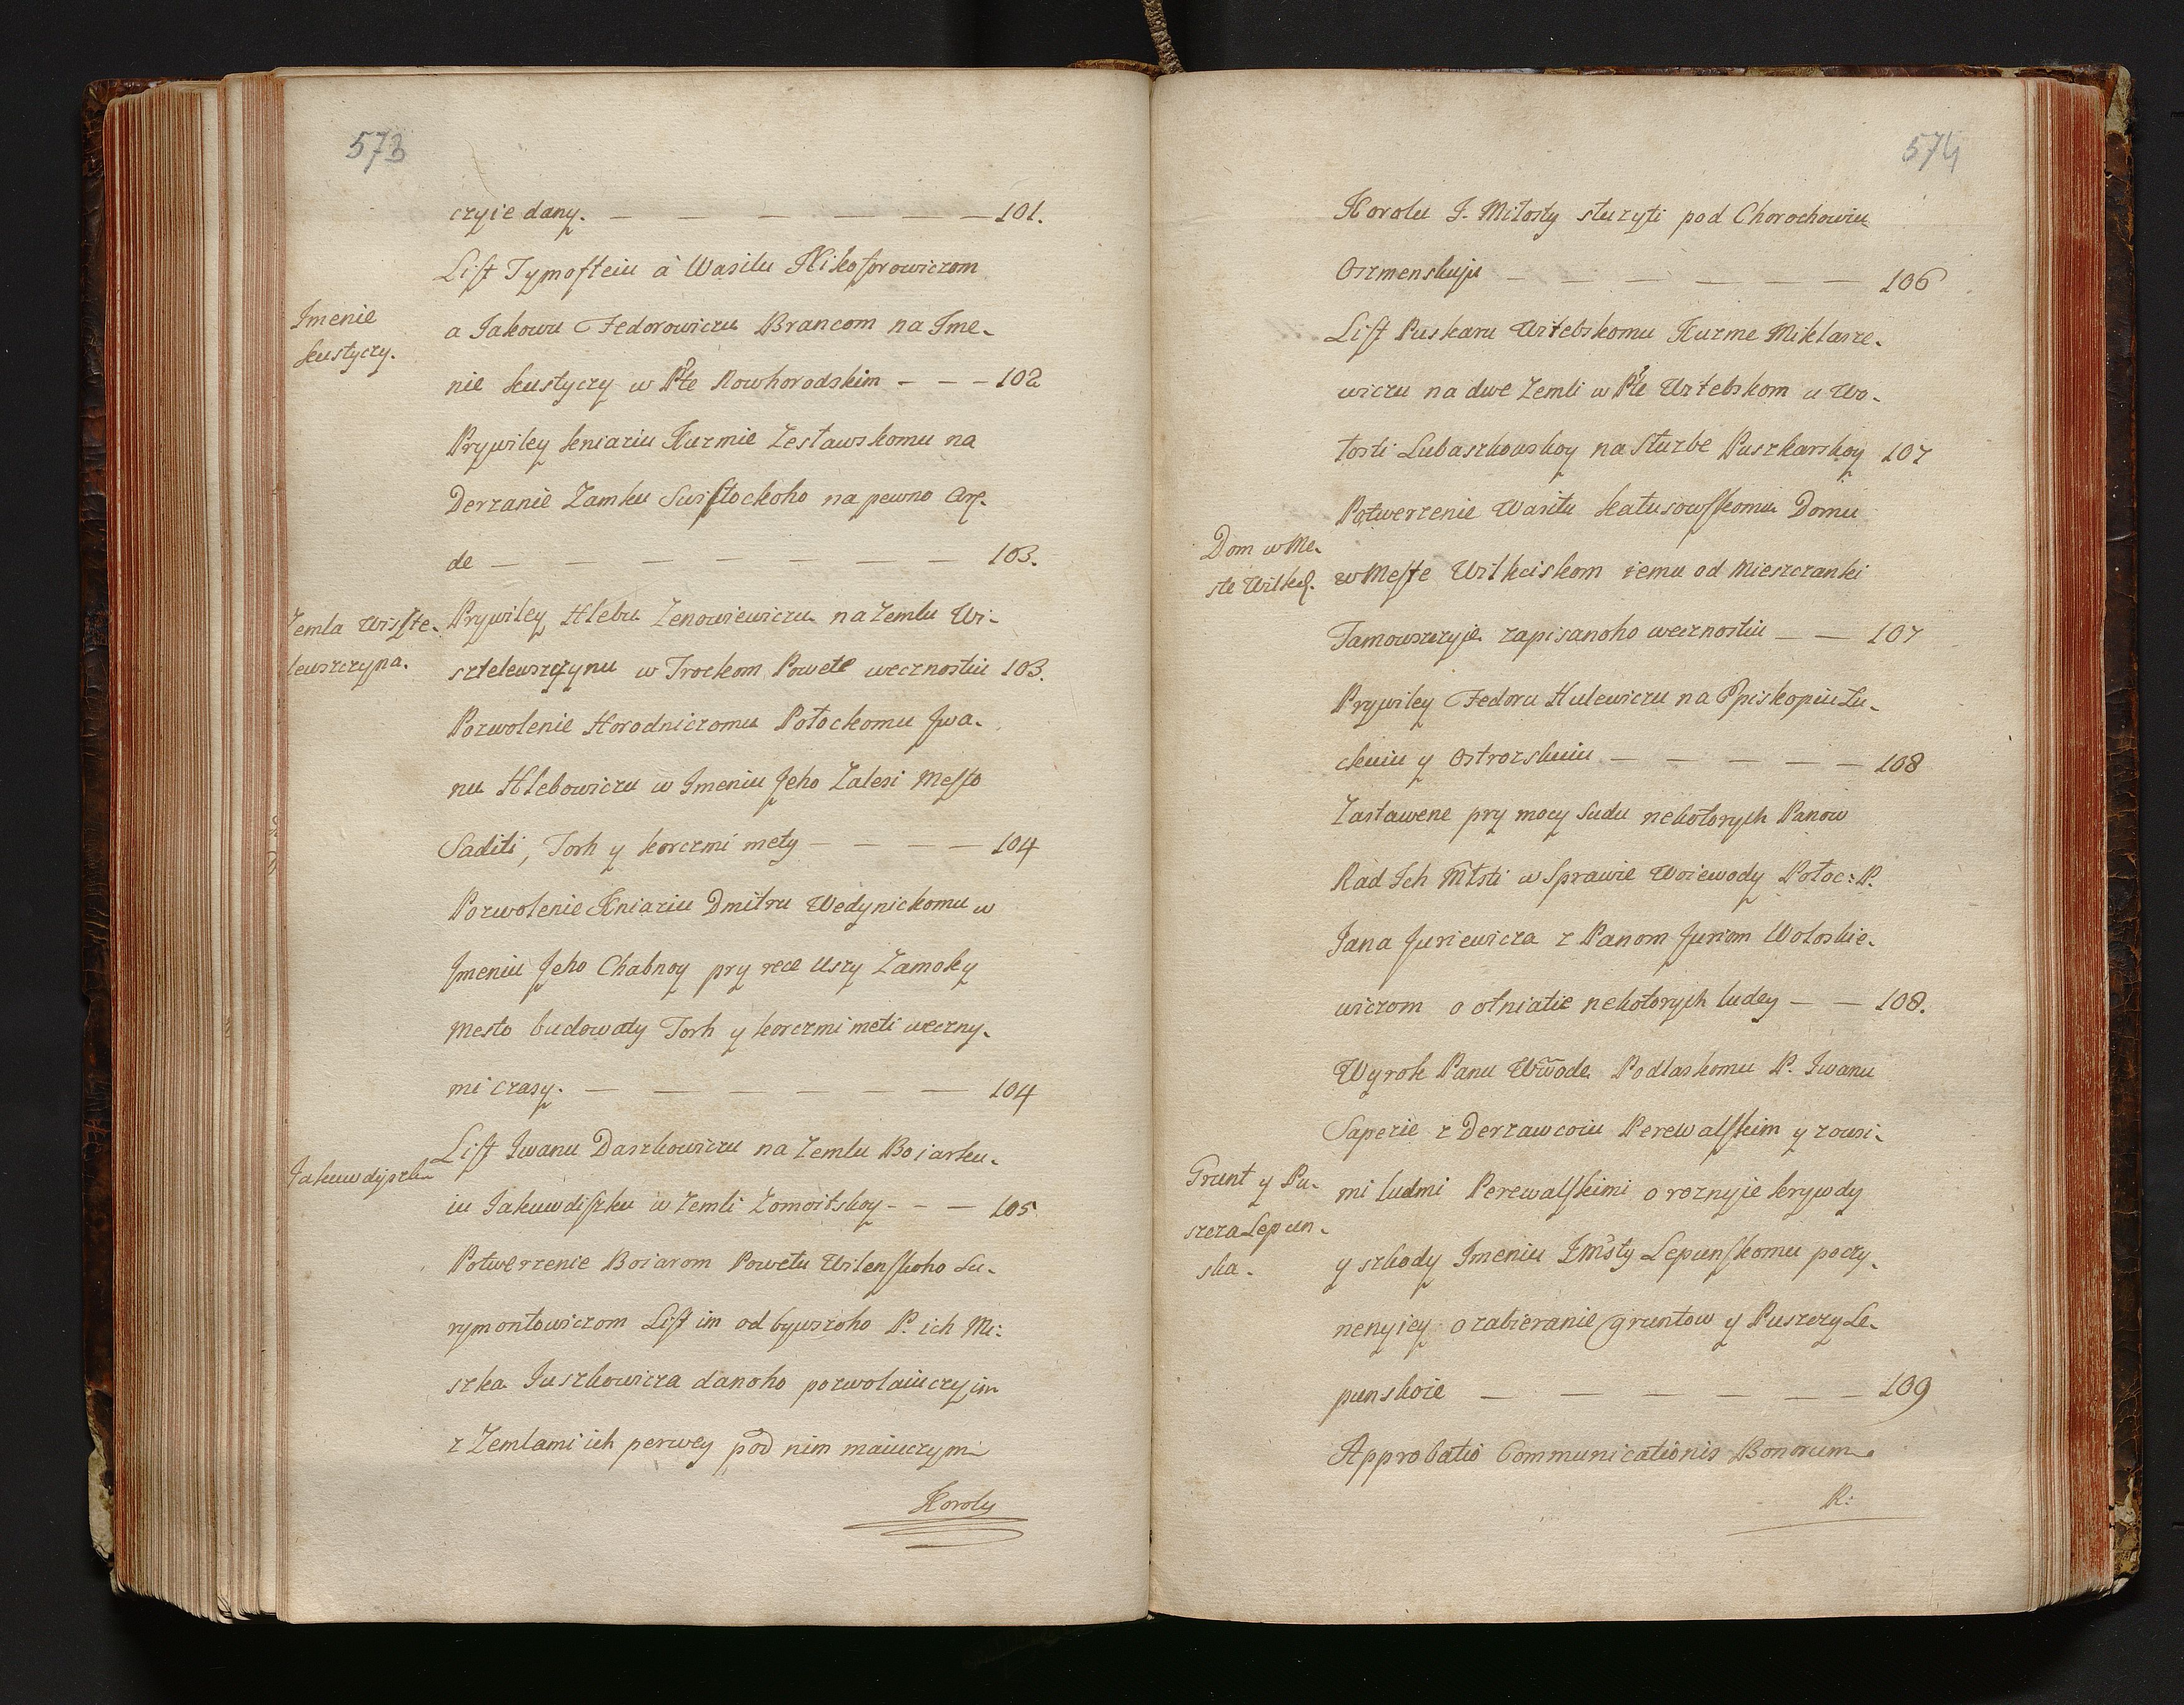 573
czyie dany. — — — — — — 101.
List Tymofteiu a Wasilu Nikoforowiczom
Imenie
kustyczy.
a Jakowu Fedorowiczu Brancom na Ime-
nie kustyczy w Pte Nowhorodskim - - - 102
Prywiley kniaziu Kuzmie Zesławskomu na
Derzanie Zamku Swisłockoho na pewno Are-
de — — — — — — — 103.
Zemla Wisste-
lewszczyna.
Prywiley Hlebu Zenowiewiczu na Zemlu Wi-
sztelewszczynu w Trockom Powete wecznostiu 103.
Pozwolenie Horodniczomu Połockomu Jwa-
nu Hlebowiczu w Imeniu Jeho Zalesi Mesto
Saditi, Torh y korczmi mety — — — — 104
Pozwolenie Kniaziu Dmitru Wedynickomu w
Jmeniu Jeho Chabnoy pry rece Uszy Zamoky
Mesto budowaty Torh y korczmi meti weczny-
mi czasy. — — — — — — 104
Jakuwdyszk
List Iwanu Daszkowiczu na Zemlu Boiarsku-
iu Jakuwdiszku w Zemli Zomoitskoy - - — 105
Potwerzenie Boiarom Powetu Wilenskoho Su-
rymontowiczom List im od bywszoho P. ich Mi-
szka Juszkowicza danoho pozwolaiuczy im
z Zemlami ich perwey pod nim maiuczymi
Korolu
574
Korolu J. Miłosty służyti pod Chorochowiu
Oszmenskuju — — — — — — 106
List Puskaru Witebskomu Kuzme Miklasze-
wiczu na dwe Zemli w Pte Witebskom u Wo-
łosti Lubaszkouskoy na Służbe Puszkarskoy 107
Potwerzenie Wasilu katusowskomu Domu
Dom w Me-
ste Wilkey.
w Meste Wilkeiskom iemu od Mieszczanki
Tamowszczyje zapisanoho wecznostiu — — 107
Prywiley Fedoru Hulewiczu na Episkopiu Lu-
ckuiu y Ostrozskuiu — — — — — 108
Zastawene pry mocy Sudu nekotorych Panow
Rad Ich Miłsti w Sprawie Woiewody Połoc: P.
Jana Juriewicza z Panom Juriom Wołoskie-
wiczom o otniatie nekotorych ludey — — 108.
Wyrok Panu Wwode Podlaskomu P. Iwanu
Sapezie z Derzawcoiu Perewalskim y zowsi-
Grunt y Pu-
szcza Lepun-
ska.
mi ludmi Perewalskimi o roznyie krywdy
y szkody Imeniu Jmsty Lepunskomu poczy-
nenyiey o zabieranie gruntow y Puszczy Le-
punskoie — — — — — — 109
Approbatio Communicationis Bonorum
R: